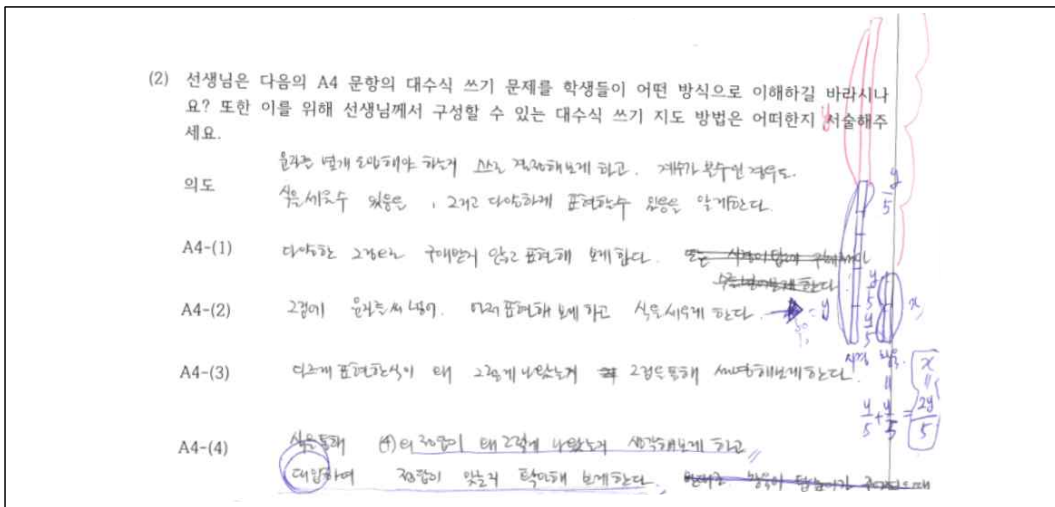 (2) 선생님은 다음의 A4 문항의 대수식 쓰기 문제를 학생들이 어떤 방식으로 이해하길 바라시나
요? 또한 이를 위해 선생님께서 구성할 수 있는 대수식 쓰기 지도 방법은 어떠한지 서술해주
세요.
문자를 몇개 도입해야 하는지 스스로 결정해보게 하고. 계수가 분수인 경우도.
의도
식을 세울수 있음을, 그리고 다양하게 표현할수 있음을 알게한다.
A4-(1) 다양한 그림으로 구애받지 않고 표현해 보게 한다.
A4-(2) 그림에 문자를 써 넣어. 표현해 보게 하고 식을 세우게 한다. = y
A4-(3) 다르게 표현한 식이 왜 그렇게 나왔는지 그림을 통해 설명해보게 한다.
A4-(4) 식을 통해 (4)의 정답이 왜 그렇게 나왔는지 생각해보게 하고
대입하여 정답이 맞는지 확인해 보게한다.
y
y/5
y/5
y/5
x
x
y/5 + y/5 = 2y/5